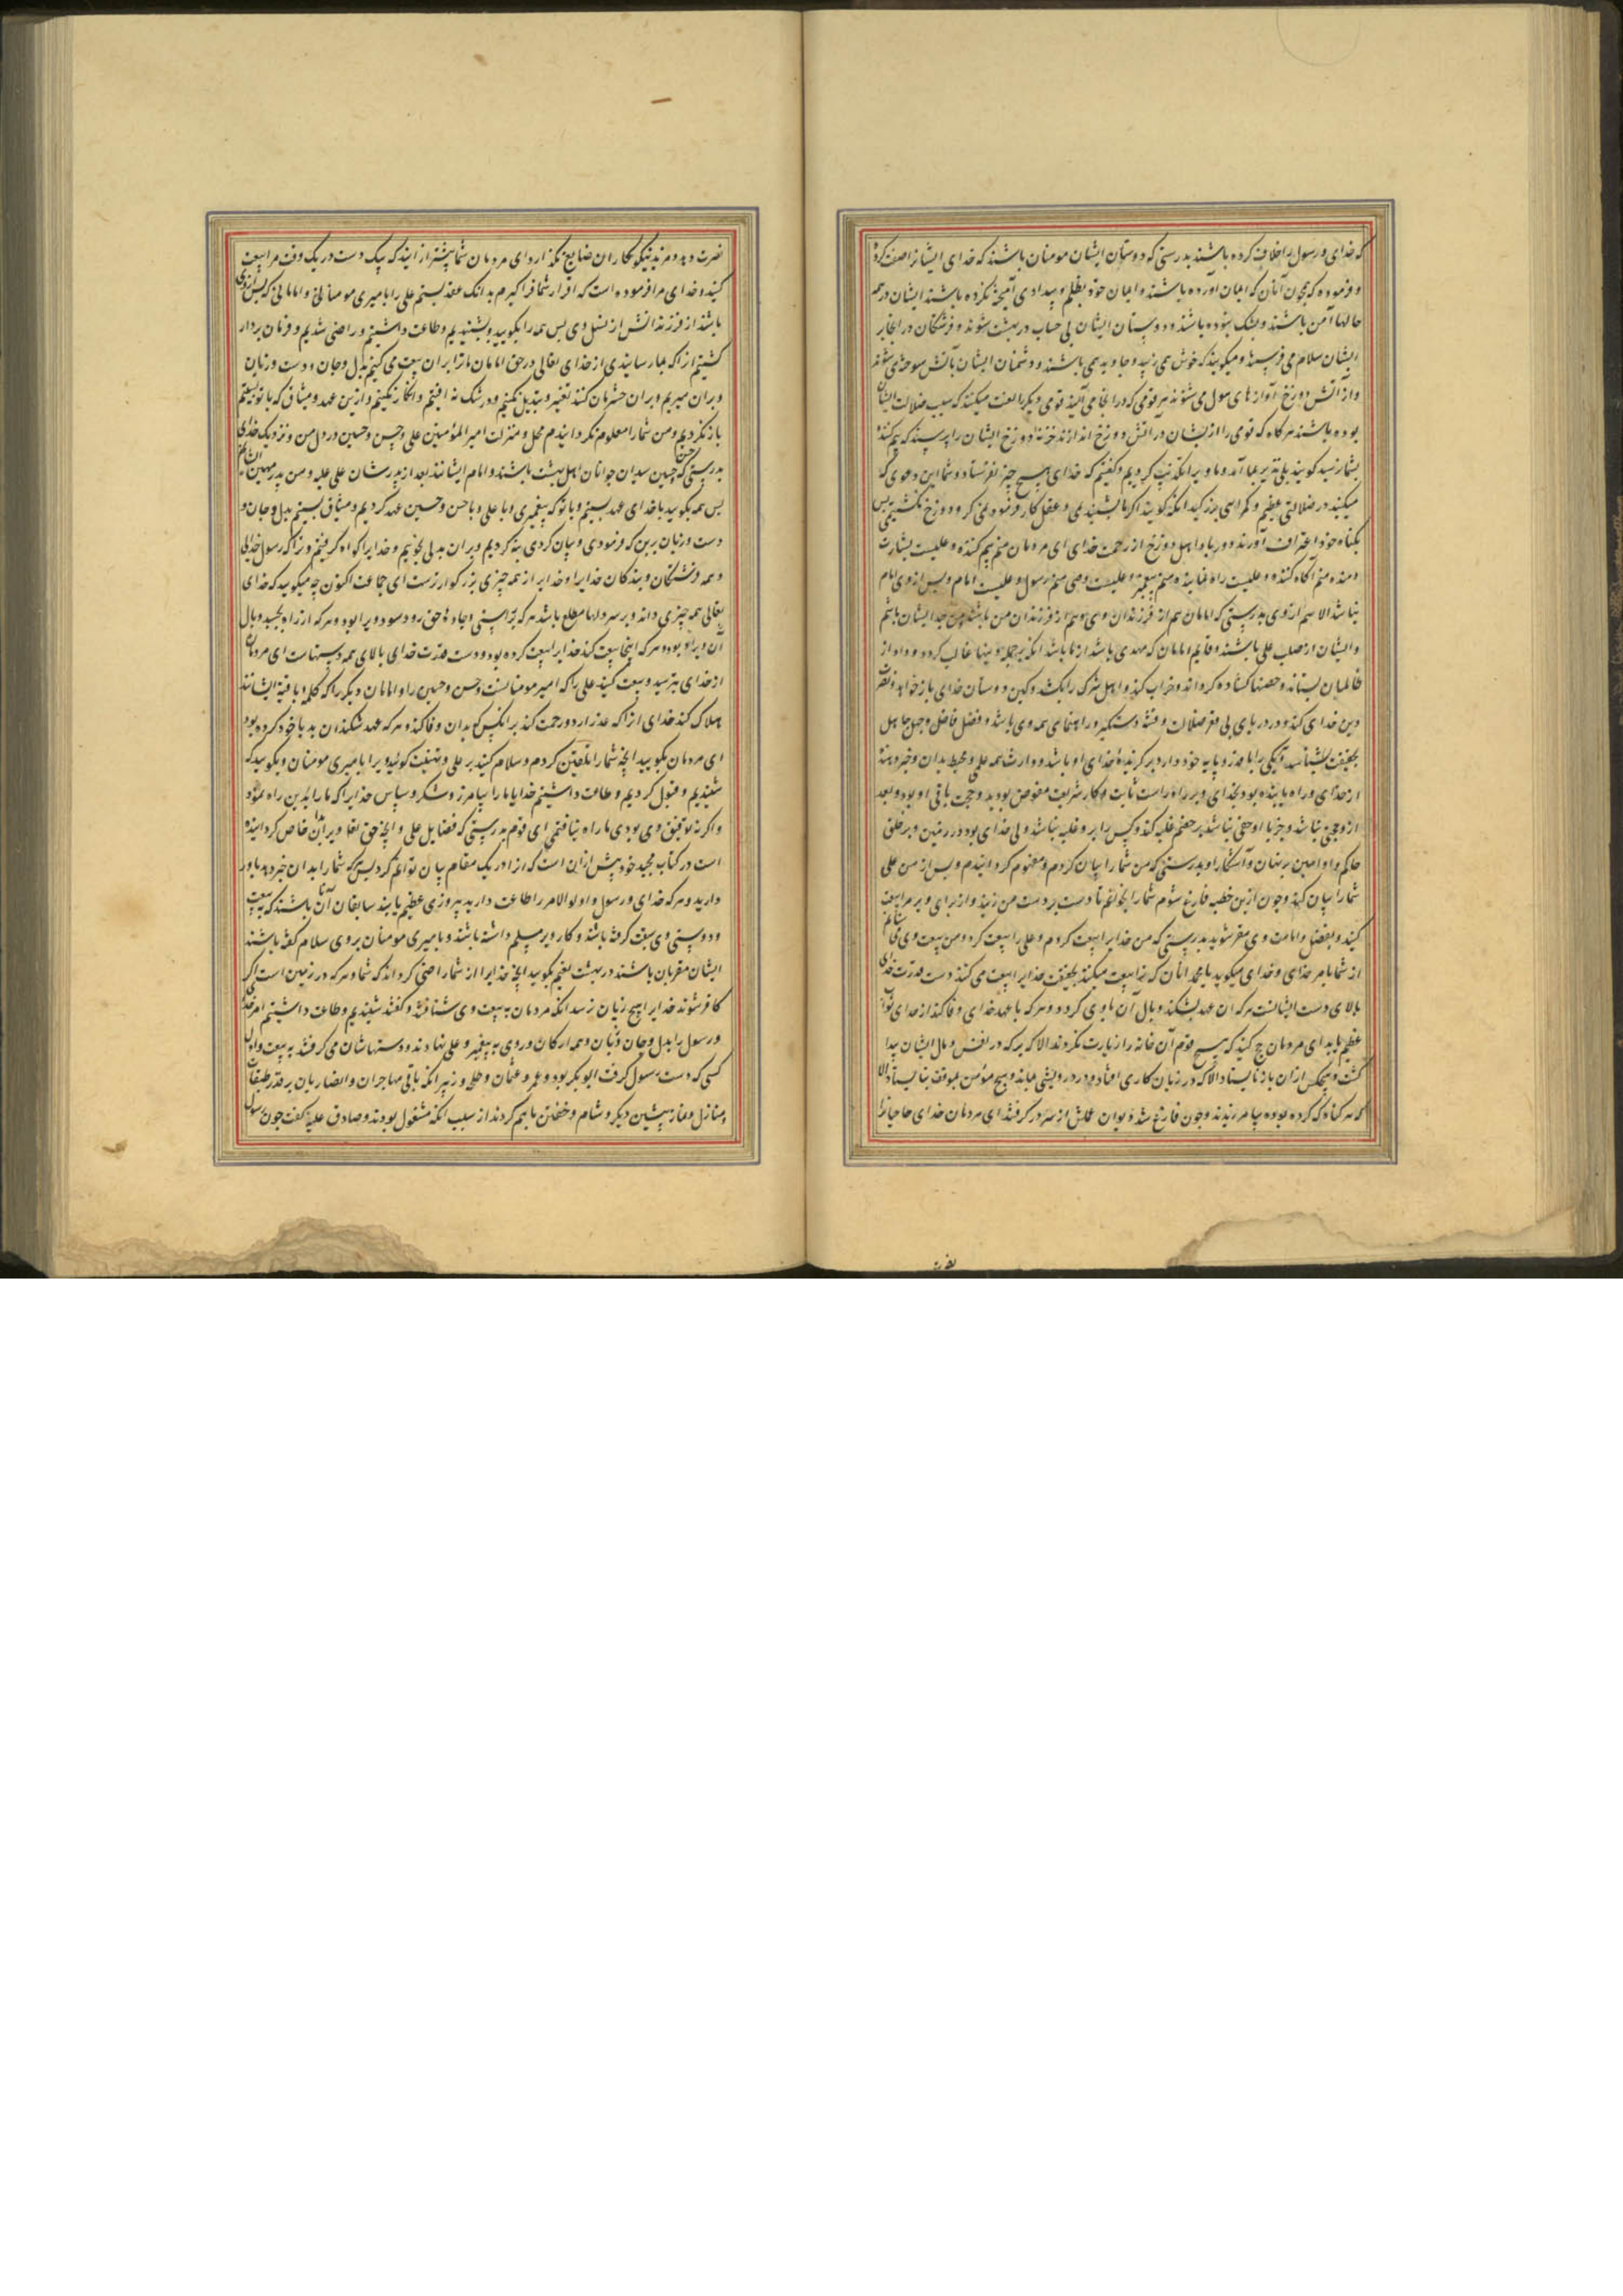 که خدای و رسول را خلاف کرده باشند بدرستی که دوستان ایشان مومنان باشند که خدای ایشانرا صفت کرد
و فرموده که آنان که ایمان آورده باشند و ایمان خود بظلم و بیدادی آمیخته نکرده باشند ایشان در همه
حالها آمن باشند و بشک نبوده باشند و دوستان ایشان بی حساب در بهشت شوند و فرشتگان در
ایشان سلام می فرستند و میگویند که خوش همی زئید و جاوید همی باشید و دشمنان ایشان بآتش سوخته می شوند
و از آتش دوزخ آوازهای هول می شنوند هر قومی که در آنجا می آیند قومی دیگر را لعنت میکنند که سبب ضلالت ایشان
بوده باشند هرگاه که قومی را از ایشان در آتش دوزخ اندازند خزنه دوزخ ایشان را پرسند که بیم کننده
بشما نرسید گویند بلی نذیر بما آمد و ما ویرا تکذیب کردیم و گفتیم که خدای هیچ چیز نفرستاد و شما این دعوی که
میکنید در ضلالتی عظیم و گمراهی بزرگید آنگه گویند اگر ما بشنیدیمی و عقل کار فرمودیمی گرد دوزخ نگشتیمی پس
بگناه خود اعتراف آورند دور بادا اهل دوزخ از رحمت خدای ای مردمان منم بیم کننده و علیست بشارت
دهنده منم آگاه کننده و علیست راه نماینده منم پیغمبر و علیست وصی منم رسول و علیست امام و پس از وی امام
نباشد الا هم از وی بدرستی که امامان هم از فرزندان وی و هم از فرزندان من باشند من جد ایشان باشم
و ایشان از صلب علی باشند و قایم امامان که مهدی باشد از ما باشد آنکه بر جمله دینها غالب گردد و داد از
ظالمان بستاند و حصنها گشاده گرداند و خراب کند و اهل شرک را بکشد و کین دوستان خدای باز خواهد و نصرت
دین خدای کند و در دریای بی قعر ضلالت و فتنه دستگیر و راهنمای همه وی باشد و فضل فاضل و جهل جاهل
بحقیقت بشناسد و یکی را با قدر و پایه خود دارد برگزیدهٔ خدای او باشد و وارث همه علم و محیط بدان و خبر دهنده
از خدای و راه یابنده بود بخدای و بر راه راست ثابت و کار شریعت مفوض بود بدو و حجت باقی او بود و بعد
از و حجتی نباشد و جز با او حقی نباشد بر خصم غلبه کند و کس را بر و غلبه نباشد ولی خدای بود در زمین و بر خلق
حاکم و او امین بر نهان و آشکارا و بدرستی که من شما را بیان کردم و مفهوم گردانیدم و پس از من علی
شما را بیان کند و چون ازین خطبه فارغ شوم شما را بخوانم تا دست بر دست من زنید و از برای ویر مرا بیعت
کنید و بفضل و امامت وی مقر شوید بدرستی که من خدایرا بیعت کردم و علی را بیعت کرد و من بیعت وی
از شما بامر خدای و خدای میگوید یا محمد آنان که ترا بیعت میکنند بحقیقت خدایرا بیعت می کنند دست قدرت خدای
بالای دست ایشانست هرکه آن عهد بشکند وبال آن باوی گردد و هرکه با عهد خدای وفا کند از خدای ثواب
عظیم یابد ای مردمان حج کنید که هیچ قوم آن خانه را زیارت نکردند الا که برکه در نفس و مال ایشان پیدا
گشت و هیچکس از آن باز نایستاد الا که در زیان کاری افتاد و در درویشی بماند و هیچ مؤمن بموقف نایستاد الا
که هر گناه که کرده بوده بیامرزیدند و چون فارغ شد دیوان عملش از سر درگرفتند ای مردمان خدای حاجیانرا
نصرت دهد و مزد نیکوکاران ضایع نگذارد ای مردمان شما بیشتر از آنید که بیک دست در یک وقت مرا بیعت
کنید و خدای مرا فرموده است که اقرار شما فراگیرم بدانک عقد بستم علی را بامیری مومنان و امامانی که پس از وی
باشند از فرزندانش از نسل وی پس همه را بگویید بشنیدیم و طاعت داشتیم و راضی شدیم و فرمان بردار
گشتیم از آنکه بما رسانیدی از خدای تعالی در حق امامان ما ترا بر آن بیعت می کنیم بدل و جان و دست و زبان
و بر آن میریم و بر آن حشرمان کنند تغییر و تبدیل نکنیم و در شک نه افتیم و انکار نکنیم و ازین عهد و میثاق که با تو بستیم
باز نگردیم و من شما را معلوم نگردانیدم محل و منزلت امیر المؤمنین علی و حسن و حسین در دل من و نزدیک خدای
بدرستی که حسن و حسین سیدان جوانان اهل بهشت باشند و امام ایشانند بعد از پدرشان علی علیه و من پدر مهین ایشانم
پس همه بگویید با خدای عهد بستیم و با تو که پیغمبری و با علی و با حسن و حسین عهد کردیم و میثاق بستیم بدل و جان و
دست و زبان برین که فرمودی و بیان کردی بنه گردیم و بر آن بدلی نجوئیم و خدایرا گواه گرفتیم و ترا که رسول خدایی
و همه فرشتگان و بندگان خدایرا و خدایرا از همه چیزی بزرگوارترست ای جماعت اکنون چه میگویید که خدای
تعالی همه چیزی داند و بر سر دلها مطلع باشد هرکه براستی و جادهٔ حق رود سود ویرا بود و هرکه از راه بچسبد وبال
آن ویرا بود و هرکه اینجا بیعت کند خدایرا بیعت کرده بود و دست قدرت خدای بالای همه دستهاست ای مردمان
از خدای بترسید و بیعت کنید علی را که امیر مومنانست و حسن و حسین را و امامان دیگر را که کلمهٔ باقیه ایشانند
هلاک کند خدای آنرا که غدر آرد و رحمت کند بر آنکس که بدان وفا کند و هرکه عهد شکند آن بد با خود کرده بود
ای مردمان بگویید آنچه شما را تلقین کردم و سلام کنید بر علی و تهنیت گوئید ویرا بامیری مومنان و بگویید که
شنیدیم و قبول کردیم و طاعت داشتیم خدایا ما را بیامرز و شکر و سپاس خدایرا که ما را بدین راه نمود
و اگر نه توفیق وی بودی ما راه نیافتمی ای قوم بدرستی که فضایل علی و آنچه حق تعا ویرا بدان خاص گردانیده
است در کتاب مجید خود بیش از آن است که آنرا در یک مقام بیان توانم کرد پس هرکه شما را بدان خبر دهد باور
دارید و هرکه خدای و رسول و اولو الامر را طاعت دارید پیروزی عظیم یابند سابقان آنان باشند که به بیعت
و دوستی وی سبقت گرفته باشند و کار ویرا مسلم داشته باشند و بامیری مومنان بر وی سلام گفته باشند
ایشان مقربان باشند در بهشت نعیم بگویید آنچه خدایرا از شما راضی گرداند که شما و هرکه در زمین است اگر
کافر شوند خدایرا هیچ زیان نرسد آنگه مردمان به بیعت وی شتافتند و گفتند شنیدیم و طاعت داشتیم امر خدای
و رسول را بدل و جان و زبان و همه ارکان و روی به پیغمبر و علی نهادند و دستهاشان می گرفتند به بیعت و اول
کسی که دست رسول گرفت ابوبکر بود و عمر و عثمان و طلحه و زبیر آنگه باقی مهاجران و انصاریان بر قدر طبقات
و منازل و نماز پیشین و دیگر و شام و خفتن با هم کردند از سبب آنکه مشغول بودند و صادق علیه گفت چون رسول